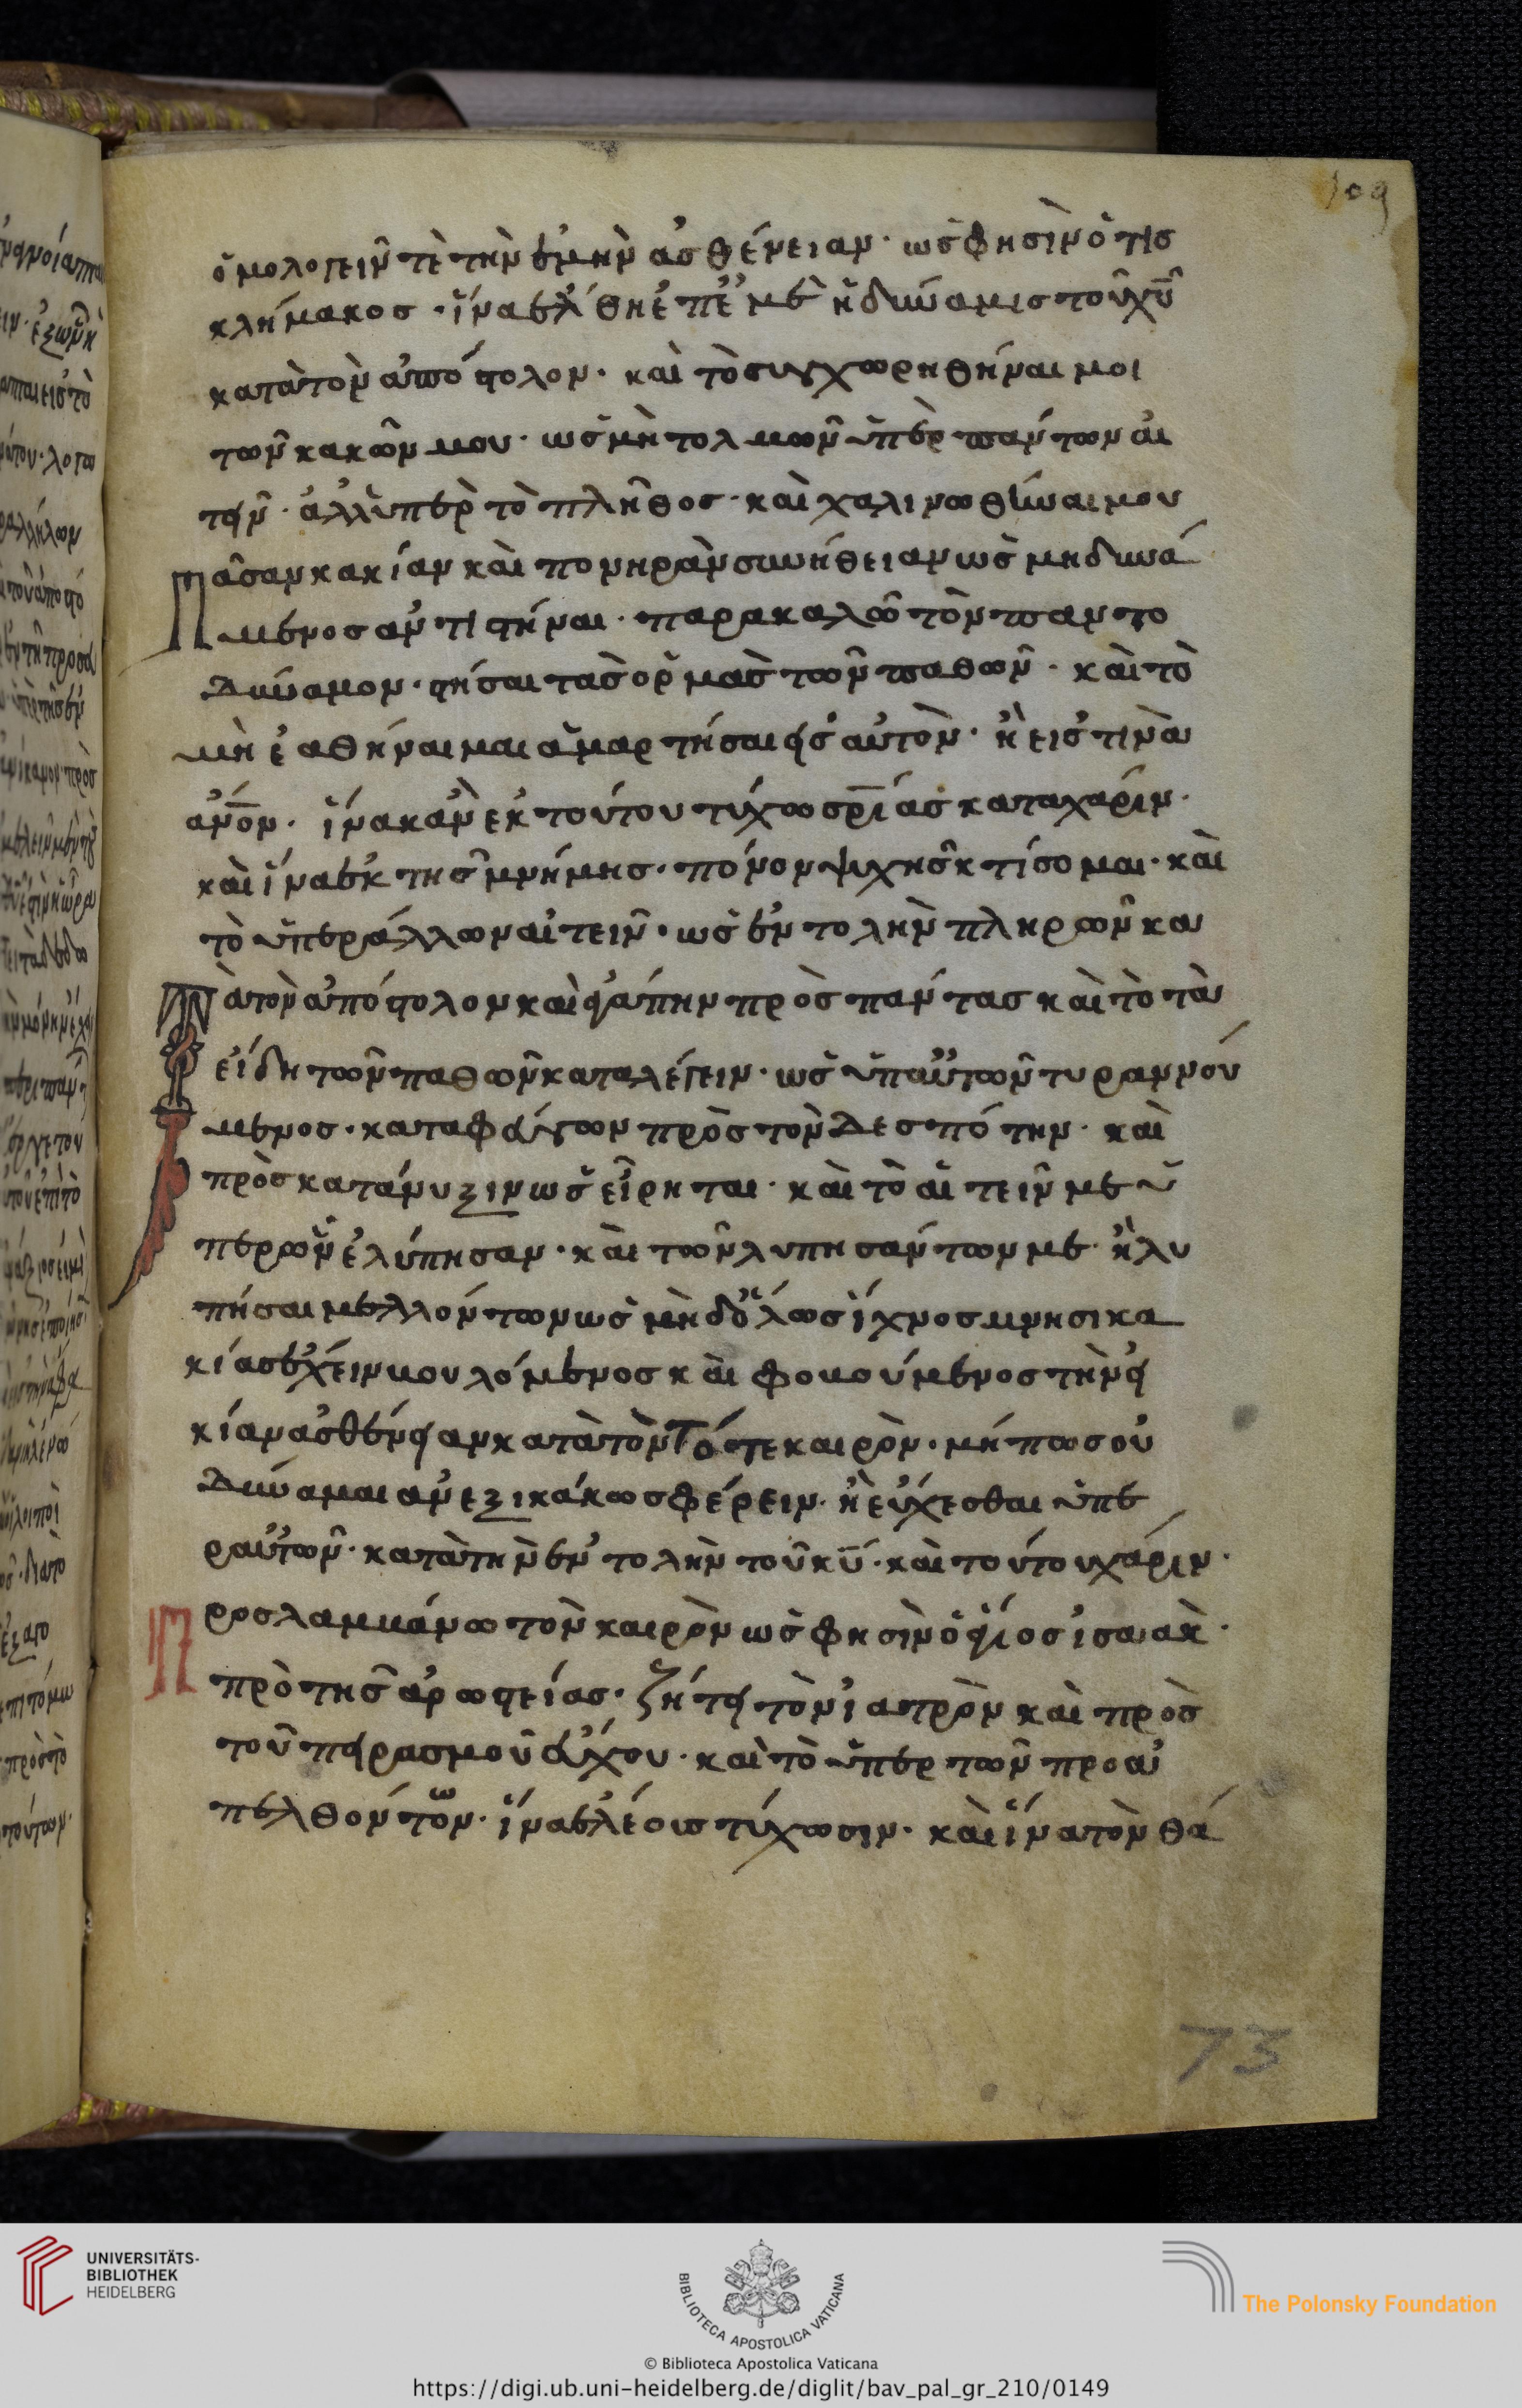 109
ὁμολογεῖν τὲ τὴν ἐμὴν ἀσθένειαν· ὡς φησὶν ὁ τῆς
κλήμακος· ἵνα ἔλθη ἐπ' ἐμὲ ἡ δύναμις τοῦ χυ
κατὰ τὸν ἀπόστολον· καὶ τὸ συγχωρηθῆναι μοι
τῶν κακῶν μου· ὡς μὴ τολμῶν ὑπὲρ πάντων αἰ
τεῖν· ἀλλ' ὑπὲρ τὸ πλῆθος· καὶ χαλινωθῆναι μου
πᾶσαν κακίαν καὶ πονηρὰν συνήθειαν ὡς μὴ δυνά
μενος ἀντιστῆναι· παρακαλῶ τὸν παντο
δύναμον· στῆσαι τὰς ὁρμὰς τῶν παθῶν· καὶ τὸ
μὴ ἐαθῆναι μαι ἁμαρτῆσαι εἰς αὐτὸν· ἢ εἰς τινὰ
ἀνον· ἵνα κἂν ἐκ τούτου τύχω σρίας κατα χάριν·
καὶ ἵνα ἐκ τῆς μνήμης· πόνον ψυχῆς κτίσομαι· καὶ
τὸ ὑπὲρ ἄλλων αἰτεῖν· ὡς ἐντολὴν πληρῶν κα
τὰ τὸν ἀπόστολον καὶ ἀγάπην πρὸς πάντας καὶ τὸ τὰ
εἴδη τῶν παθῶν καταλέγειν· ὡς ὑπ' αὐτῶν τυραννού
μενος· καταφεύγων πρὸς τὸν δεσπότην· καὶ
πρὸς κατάνυξιν ὡς εἴρηται· καὶ τὸ αἰτεῖν με ὑ
πὲρ ὧν ἐλύπησαν· καὶ τῶν λυπησάντων με· ἢ λυ
πῆσαι μελλόντων ὡς μὴ δόλως ἴχνος μνησικα
κίας ἔχειν βουλόμενος καὶ φοβούμενος τὴν ἐ
κίαν ἀσθένειαν κατὰ τὸν τότε καιρὸν· μήπως οὐ
δύναμαι ἀνεξικάκως φέρειν· ἢ εὔχεσθαι ὑπὲ
ρ αὐτῶν· κατὰ τὴν ἐντολὴν τοῦ κυ· καὶ τούτου χάριν·
προσλαμβάνω τὸν καιρὸν ὡς φησὶν ὁ ἅγιος ἰσαὰκ·
πρὸ τῆς ἀρωστείας· ζήτει τὸν ἰατρὸν καὶ πρὸς
τοῦ πειρασμοῦ εὔχου· καὶ τὸ ὑπὲρ τῶν προα
πελθόντων· ἵνα ἐλέους τύχωσιν· καὶ ἵνα τὸν θά
73
UNIVERSITÄTS-
BIBLIOTHEK
HEIDELBERG
BIBLIOTECA APOSTOLICA VATICANA
The Polonsky Foundation
© Biblioteca Apostolica Vaticana
https://digi.ub.uni-heidelberg.de/diglit/bav_pal_gr_210/0149